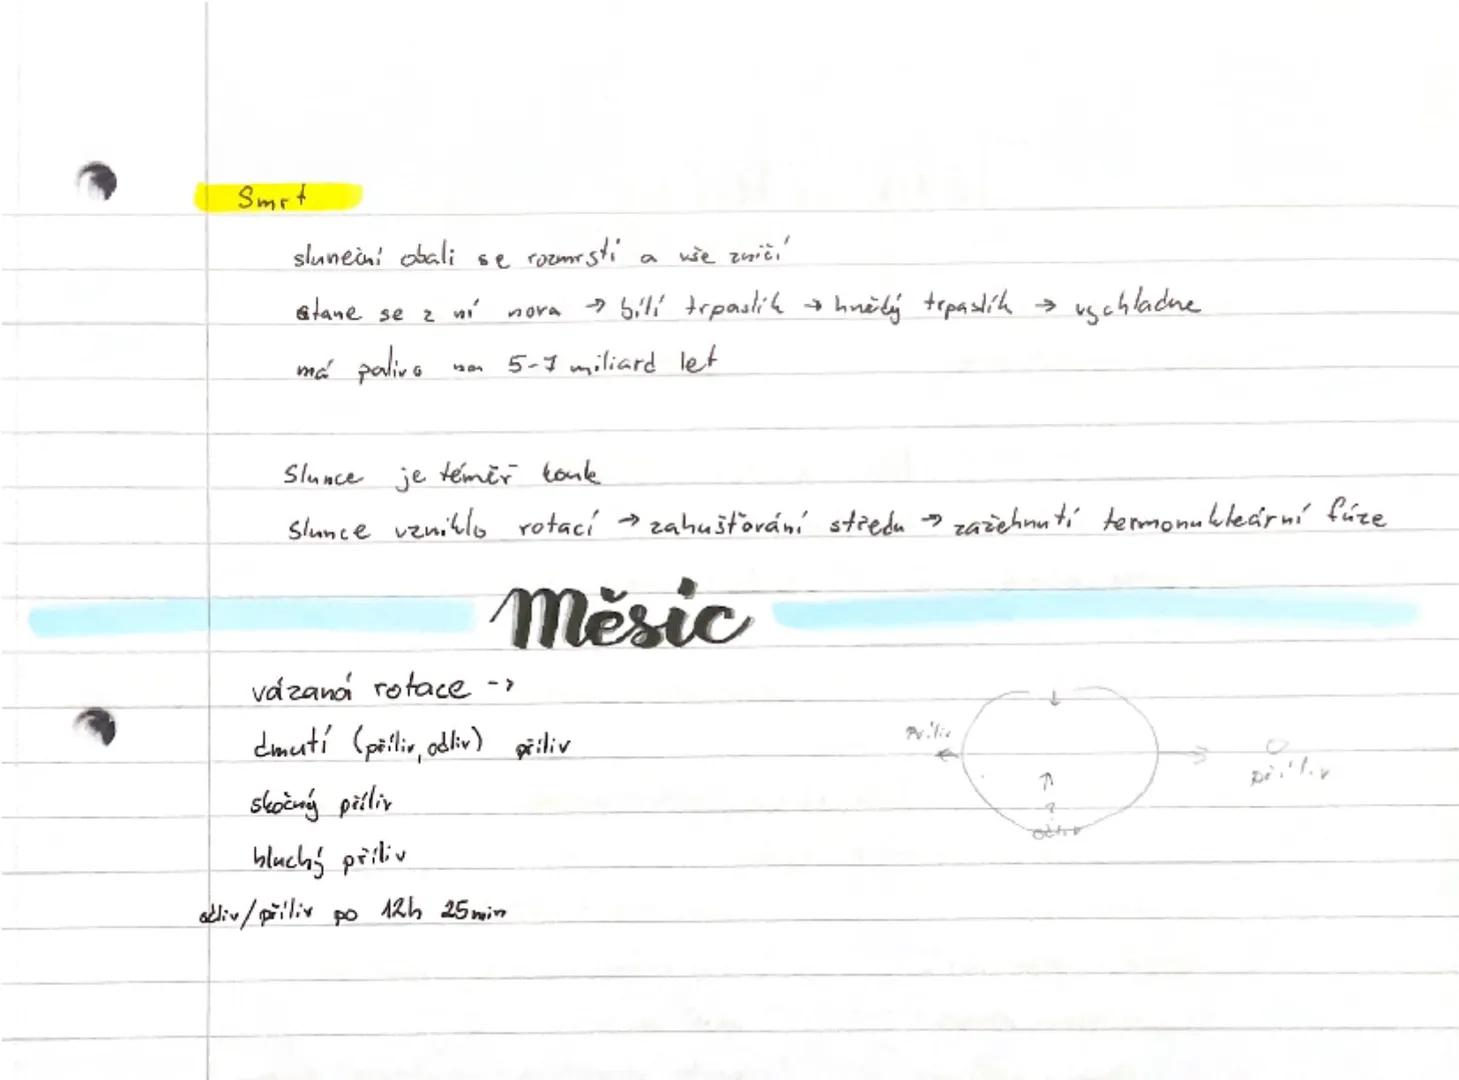 Smrt
sluneční obali se rozmrstí a vše zničí
stane se z ní nova → bílí trpaslík → hnědý trpaslík → vychladne
má palivo na 5-7 miliard let
Slunce je téměř koule
Slunce vzniklo rotací → zahušťování středu → zažehnutí termonukleární fúze
Měsíc
vázaná rotace ->
dmutí (příliv, odliv) příliv
skočný příliv
hluchý příliv
odliv/příliv po 12h 25min
Příliv
příliv
odliv